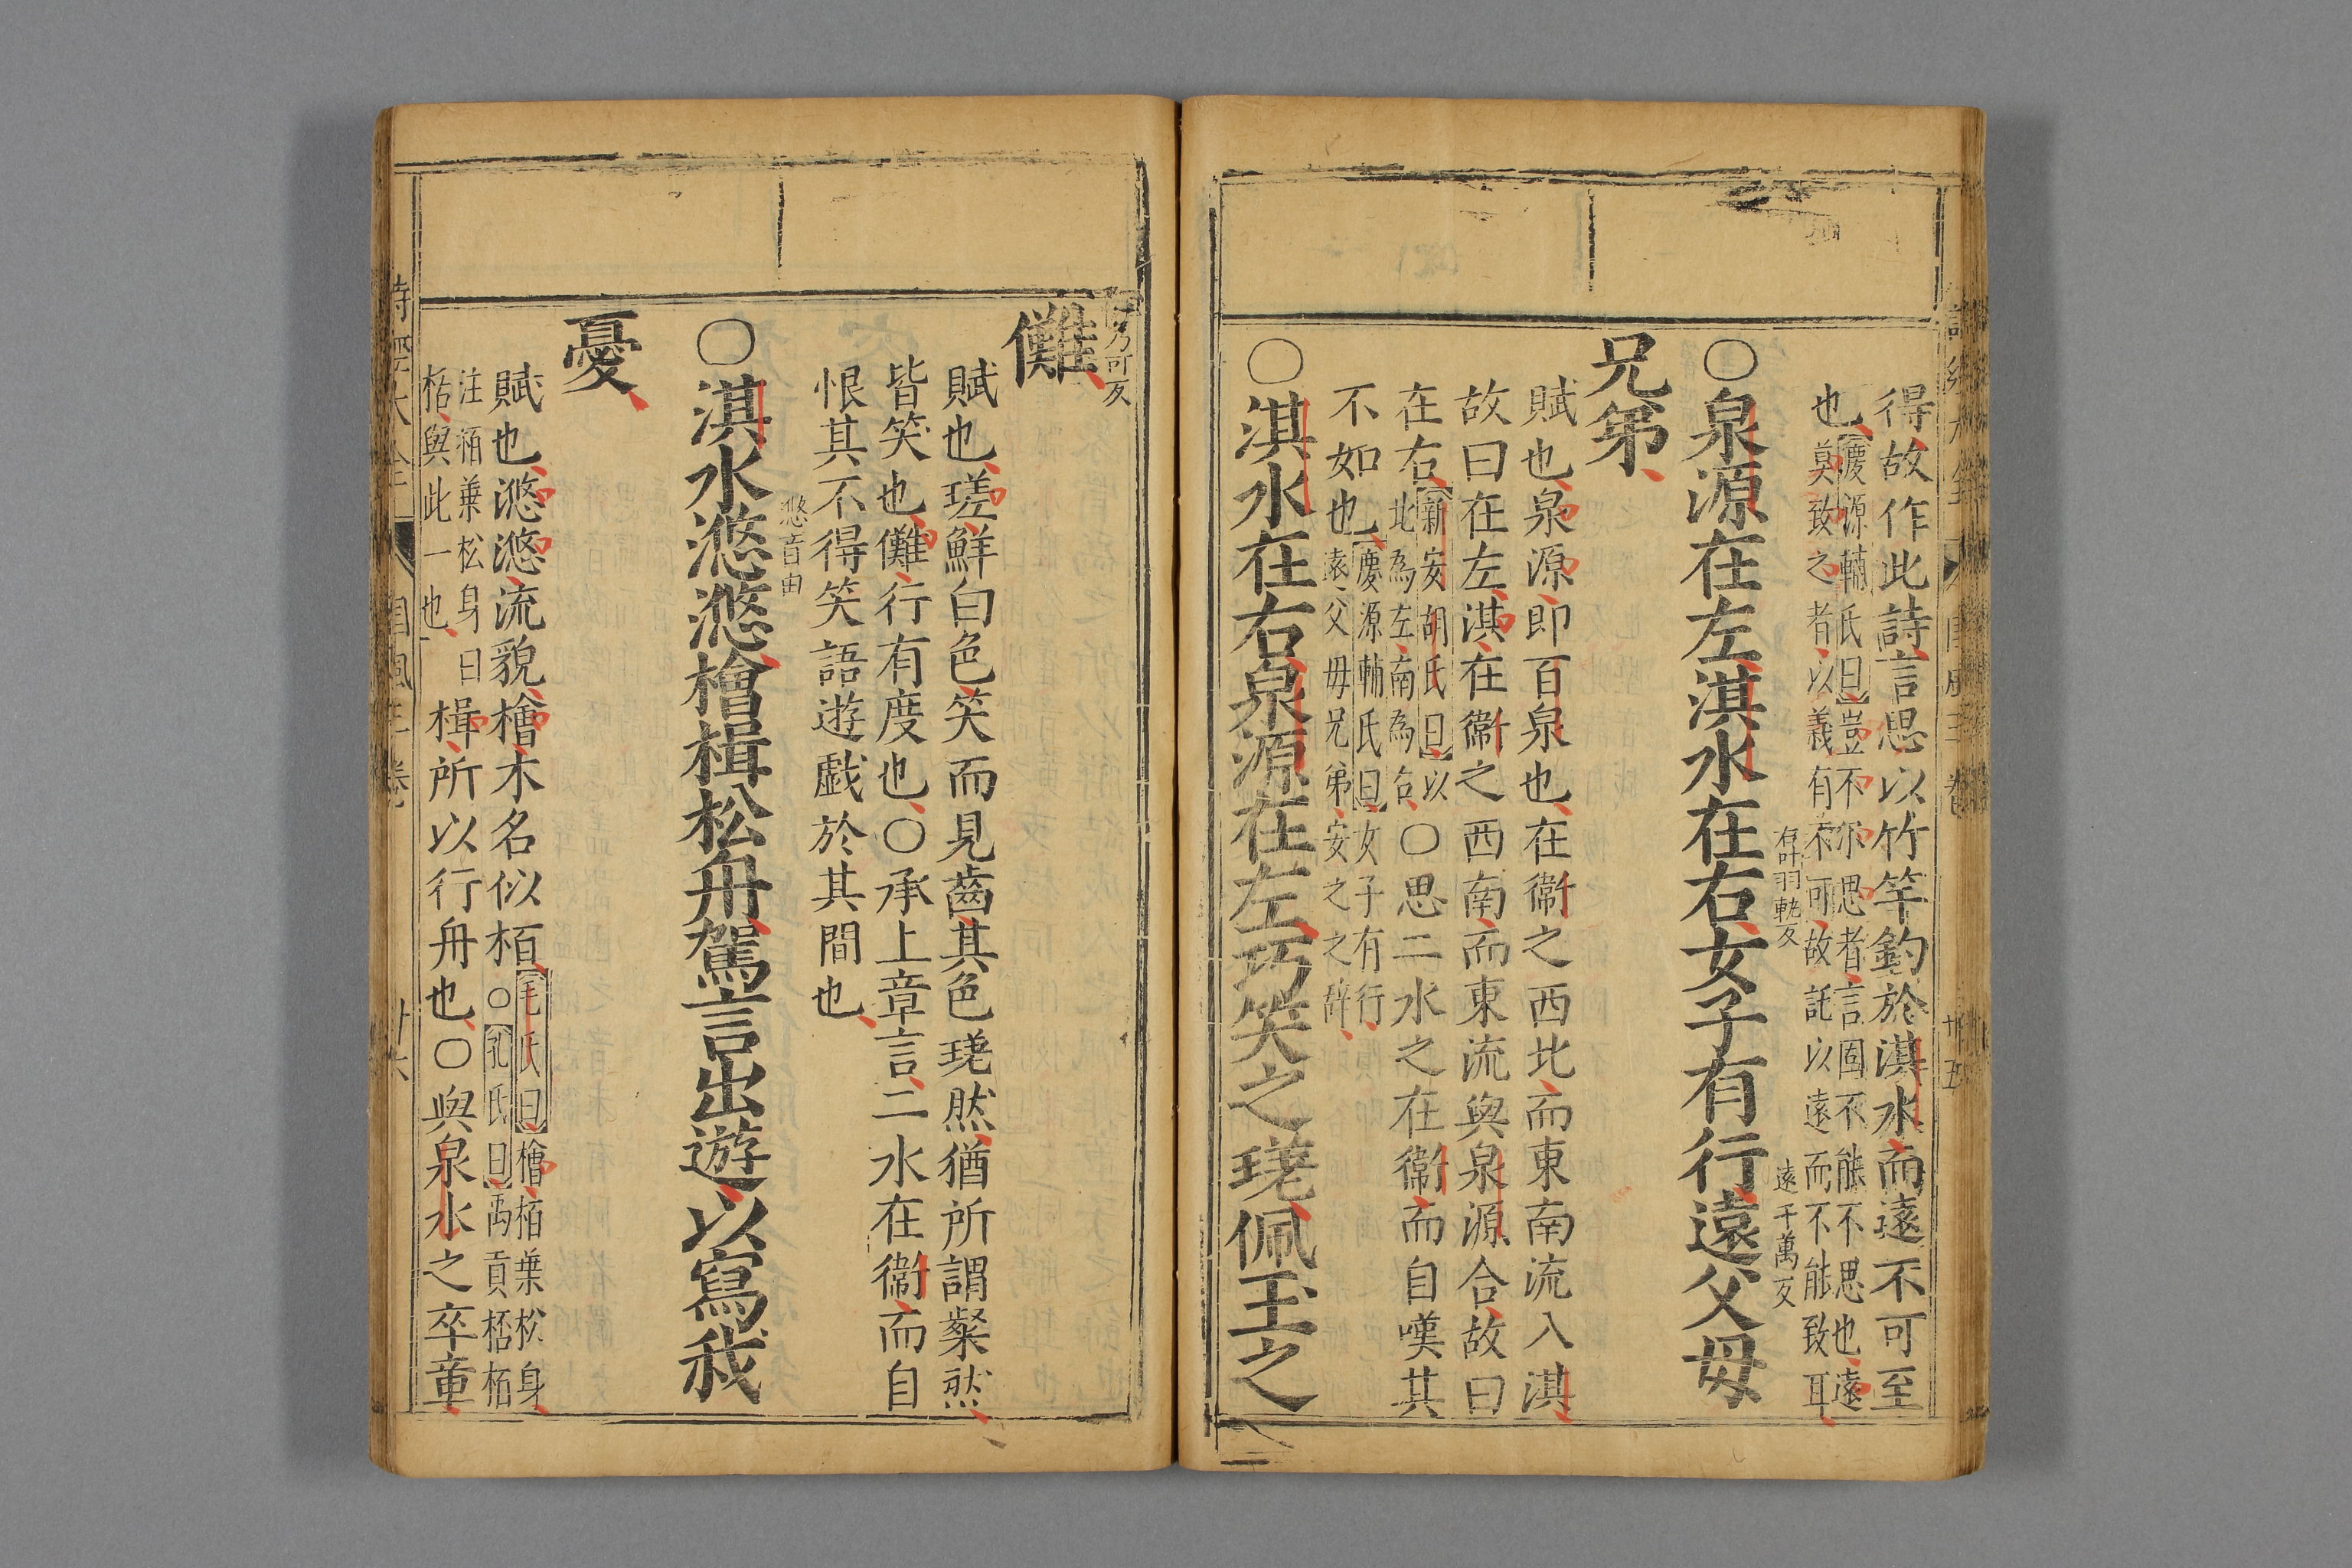 得故作此詩言思以竹竿釣於淇水而遠不可至
也慶源輔氏曰豈不尔思者言固不能不思也遠
莫致之者以義有不可故託以遠而不能致耳
右叶羽軌反
遠于萬反
○泉源在左淇水在右女子有行遠父母
兄弟
賦也泉源即百泉也在衛之西北而東南流入淇
故曰在左淇在衛之西南而東流與泉源合故曰
在右新安胡氏曰以
北為左南為右○思二水之在衛而自嘆其
不如也慶源輔氏曰女子有行
遠父母兄弟安之之辭
○淇水在右泉源在左巧笑之瑳佩玉之
乃可反
儺
賦也瑳鮮白色笑而見齒其色瑳然猶所謂粲然
皆笑也儺行有度也○承上章言二水在衛而自
恨其不得笑語遊戲於其間也
滺音由
○淇水滺滺檜楫松舟駕言出遊以寫我
憂
賦也滺滺流貌檜木名似栢毛氏曰檜栢葉松身
○孔氏曰禹貢栝栢
注栢葉松身曰
栝與此一也楫所以行舟也○與泉水之卒章